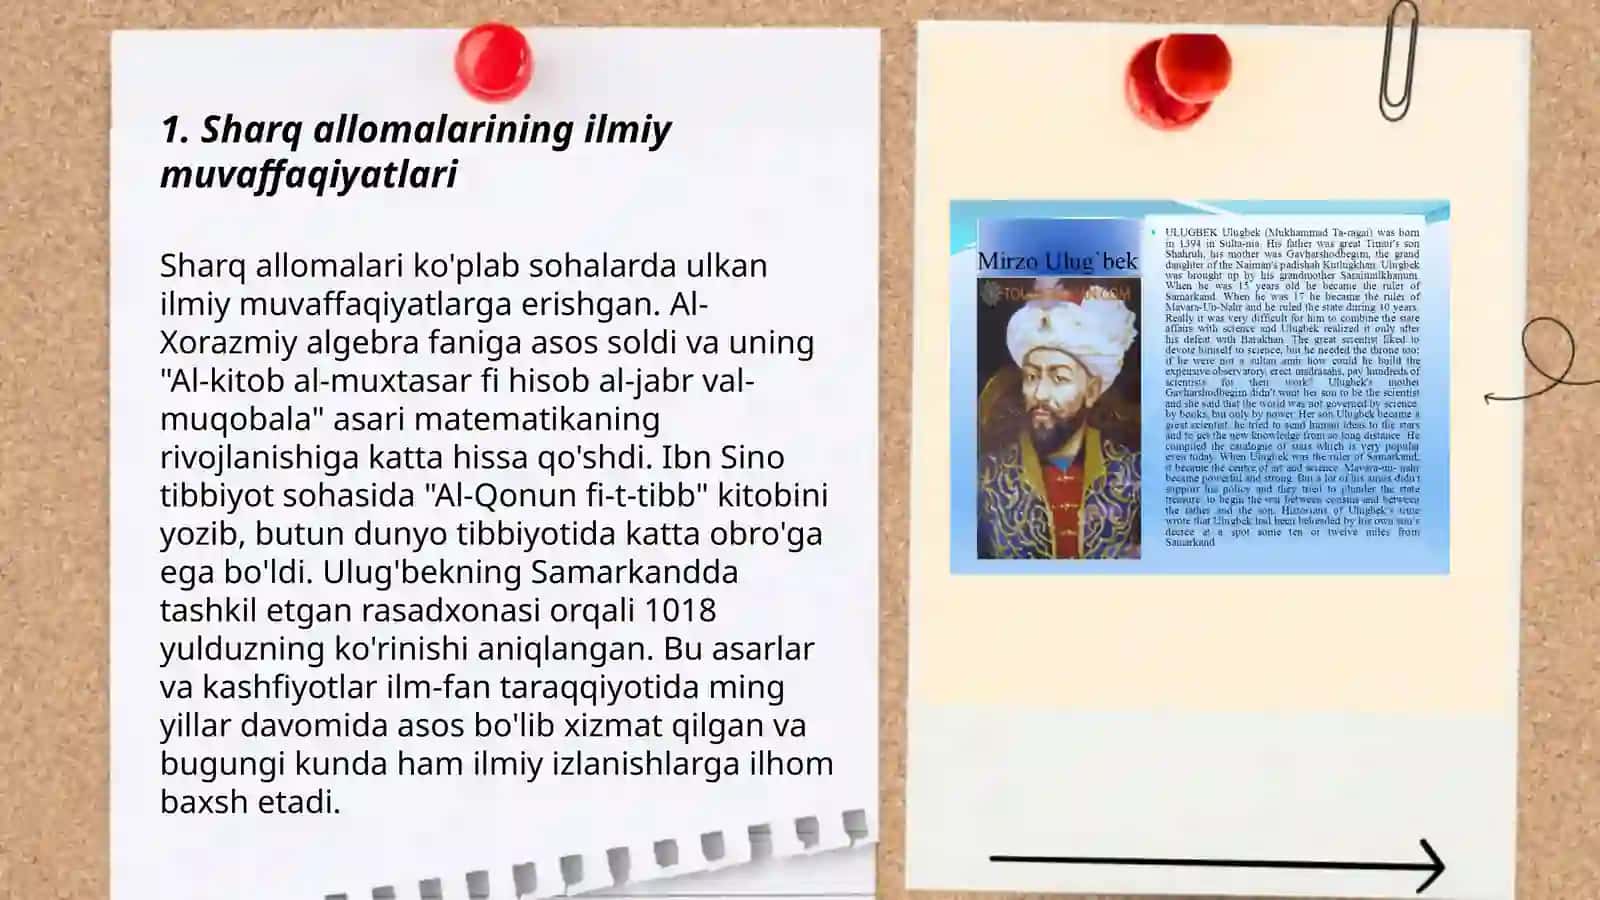 1. Sharq allomalarining ilmiy
muvaffaqiyatlari
Sharq allomalari ko'plab sohalarda ulkan
ilmiy muvaffaqiyatlarga erishgan. Al-
Xorazmiy algebra faniga asos soldi va uning
"Al-kitob al-muxtasar fi hisob al-jabr val-
muqobala" asari matematikaning
rivojlanishiga katta hissa qo'shdi. Ibn Sino
tibbiyot sohasida "Al-Qonun fi-t-tibb" kitobini
yozib, butun dunyo tibbiyotida katta obro'ga
ega bo'ldi. Ulug'bekning Samarkandda
tashkil etgan rasadxonasi orqali 1018
yulduzning ko'rinishi aniqlangan. Bu asarlar
va kashfiyotlar ilm-fan taraqqiyotida ming
yillar davomida asos bo'lib xizmat qilgan va
bugungi kunda ham ilmiy izlanishlarga ilhom
baxsh etadi.
Mirzo Ulug`bek
ULUGBEK Ulugbek (Mukhammad Ta-ragai) was born
in 1394 in Sulta-nia. His father was great Timur's son
Shahruh, his mother was Gavharshodbegim, the grand
daughter of the Naiman's padishah Kutlugkhan. Ulugbek
was brought up by his grandmother Saraimulkhanum.
When he was 15 years old he became the ruler of
Samarkand. When he was 17 he became the ruler of
Mavara-Un-Nahr and he ruled the state during 40 years.
Really it was very difficult for him to combine the state
affairs with science and Ulugbek realized it only after
his defeat with Barakhan. The great scientist liked to
devote himself to science, but he needed the throne too;
if he were not a sultan amir how could he build the
expensive observatory, erect madrasahs, pay hundreds of
scientists for their work? Ulugbek's mother
Gavharshodbegim didn't want her son to be the scientist
and she said that the world was not governed by science,
by books, but only by power. Her son Ulugbek became a
great scientist, he tried to send human ideas to the stars
and to get the new knowledge from so long distance. He
compiled the catalogue of stars which is very popular
even today. When Ulugbek was the ruler of Samarkand,
it became the centre of art and science. Mavara-un-nahr
became powerful and strong. But a lot of his amirs didn't
support his policy and they tried to plunder the state
treasure, to begin the war between cousins and between
the father and the son. Historians of Ulugbek's time
wrote that Ulugbek had been beheaded by his own son's
decree at a spot some ten or twelve miles from
Samarkand